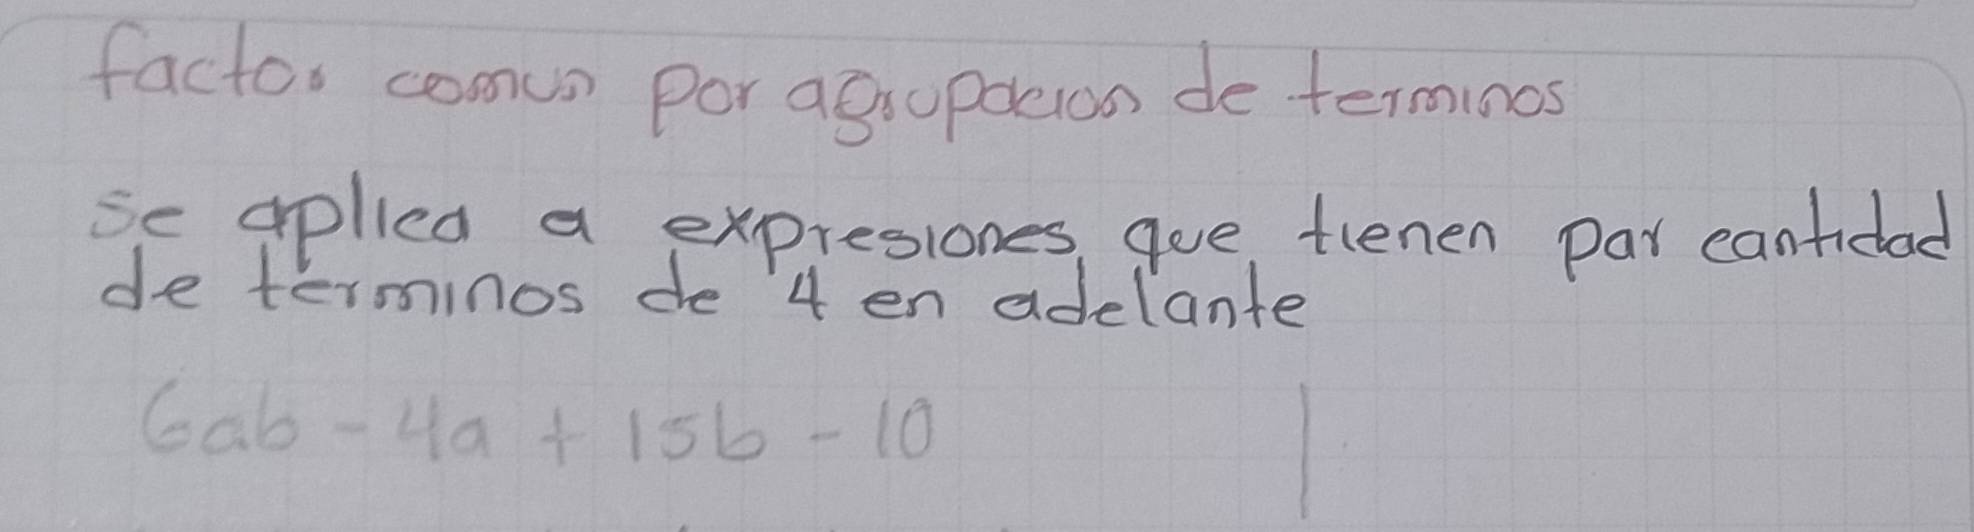 factor comun por agrupacion de terminos
se aplica a expresiones que tienen par cantidad
de terminos de 4 en adelante
6ab - 4a + 15b - 10